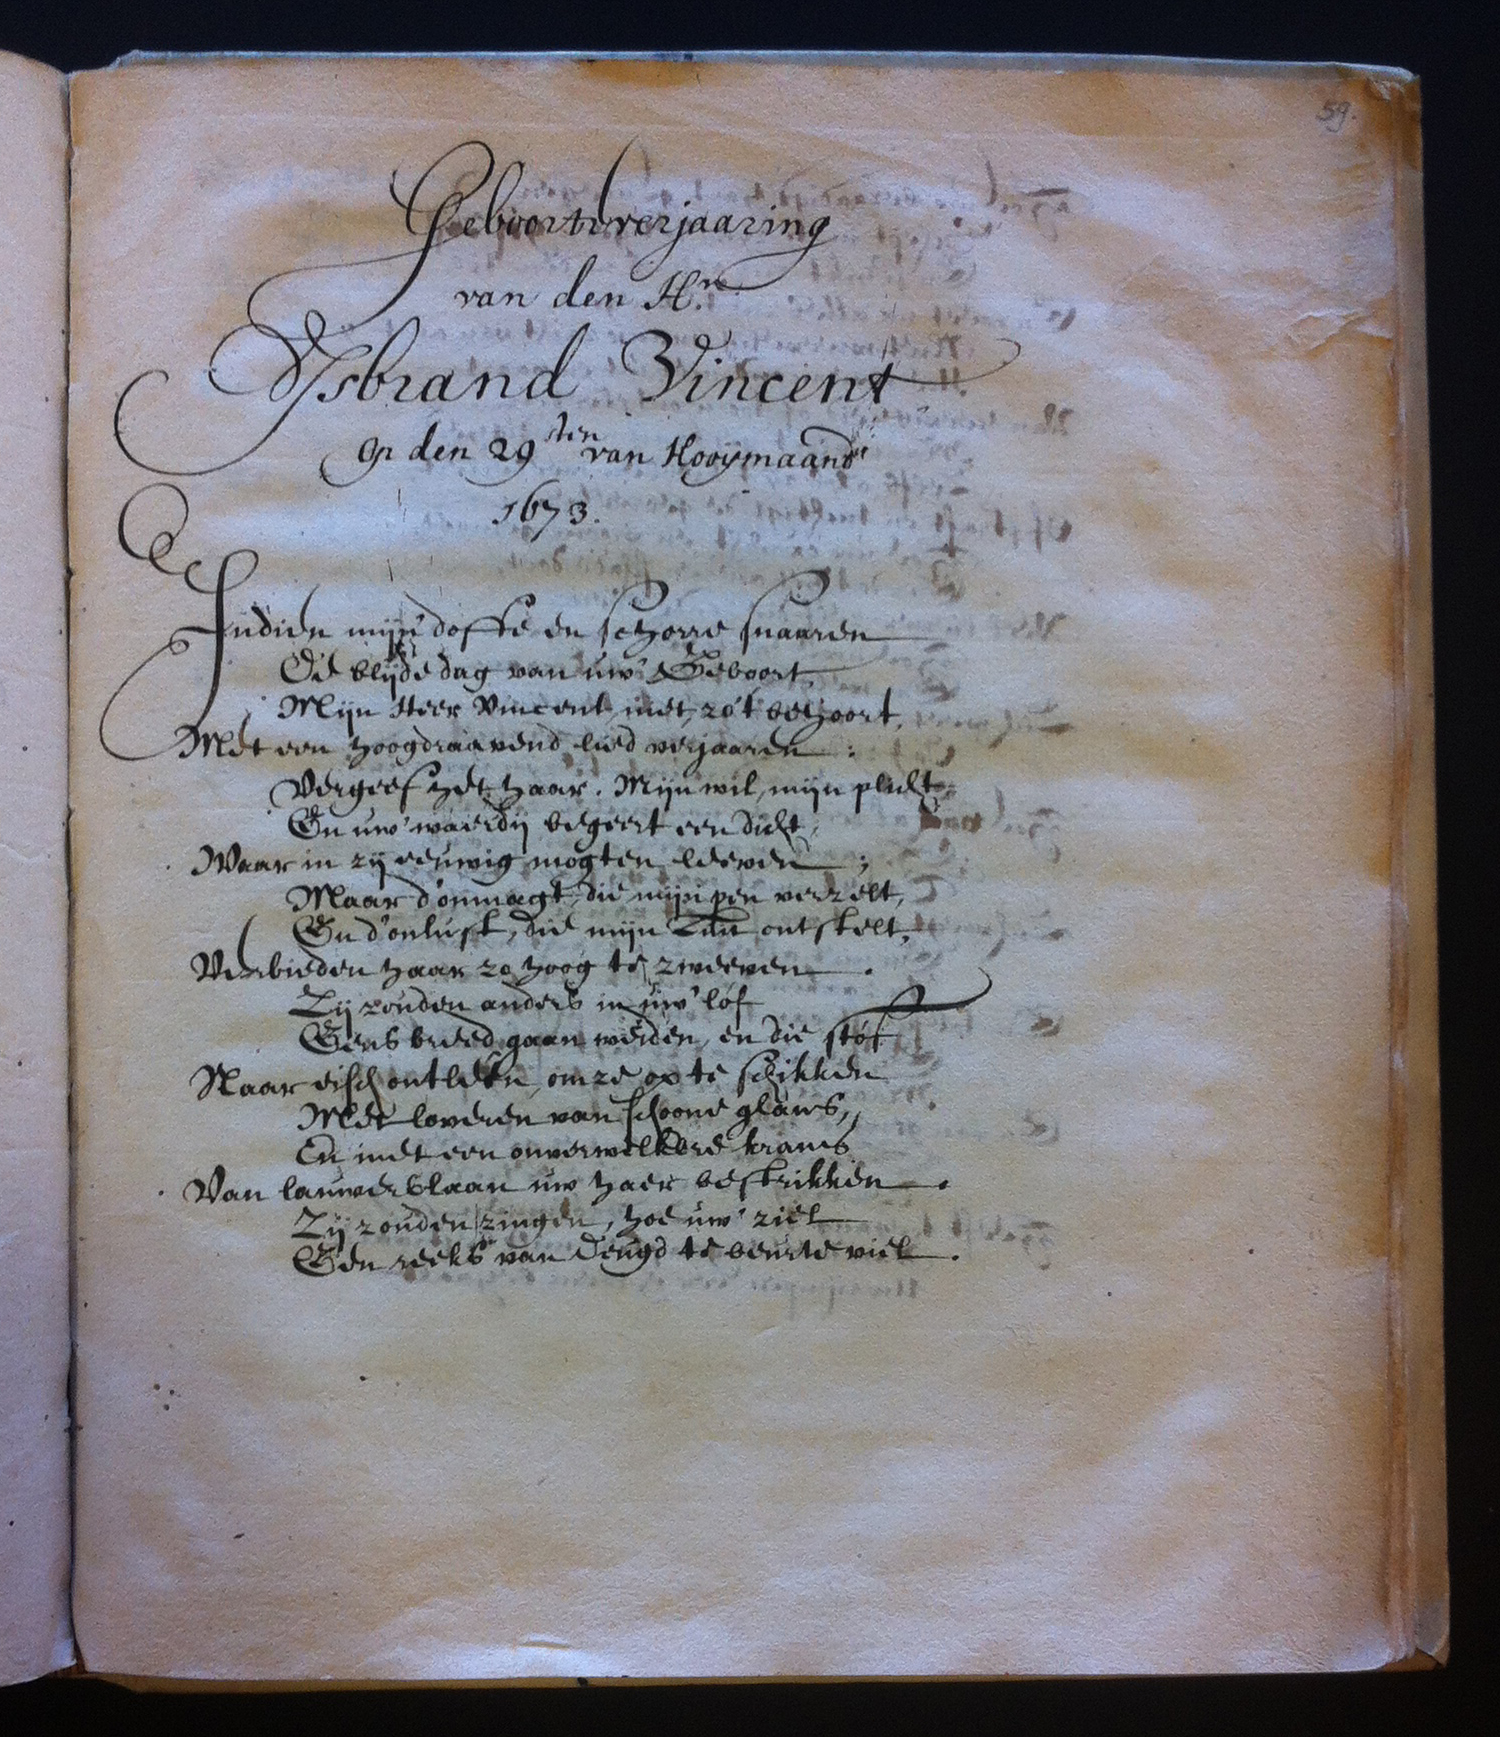 59.
Geboorteverjaaring
van den Hre.
Ysbrand Vincent
Op den 29sten van Hooymaand
1673.
Indien mijn' doffe en schorre snaaren
De blijde dag van uw' Geboort,
Mijn Heer Vincent, niet, zo 't behoort,
Met een hoogdraavend lied verjaaren:
Vergeef het haar. Mijn wil, mijn plicht,
En uw' waerdij begeert een dicht,
Waar in zij eeuwig mogten leeven;
Maar d'onmagt, die mijn pen verzelt,
En d'onlust, die mijn Zin ontstelt,
Verbieden haar zo hoog te zweeven.
Zij zouden anders in uw' lof
Eens breed gaan weiden, en die stof
Naar eisch ontleên, om ze op te schikken
Met loveren van schoone glans,
En met een onverwelkbre krans
Van lauwerblaan uw haer bestrikken.
Zij zouden zingen, hoe uw' ziel
Een reeks van Deugd te beurte viel.